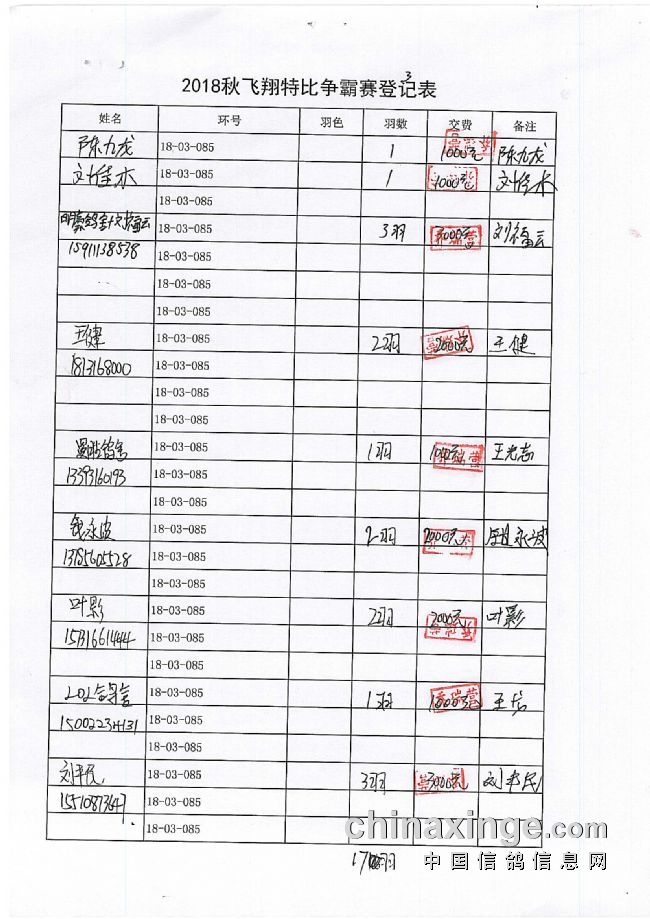 3
2018秋飞翔特比争霸赛登记表
姓名 环号 羽色 羽数 交费 备注
陈九龙 18-03-085 1 1000元 陈九龙
刘佳木 18-03-085 1 1000元 刘佳木
18-03-085
18-03-085 3羽 3000元 刘福云
15911138538 18-03-085
18-03-085
18-03-085
王健 18-03-085 2羽 2000元 王健
1813168000 18-03-085
18-03-085
18-03-085
18-03-085 1羽 1000元 王光志
13393160193 18-03-085
18-03-085
永波 18-03-085 2羽 2000元 永波
13785605528 18-03-085
18-03-085
叶影 18-03-085 2羽 2000元 叶影
15131661444 18-03-085
18-03-085
18-03-085 1羽 1000元 王
18-03-085
18-03-085
刘 18-03-085 3羽 3000元 刘 民
18-03-085
18-03-085
chinaxinge.com
中国信鸽信息网